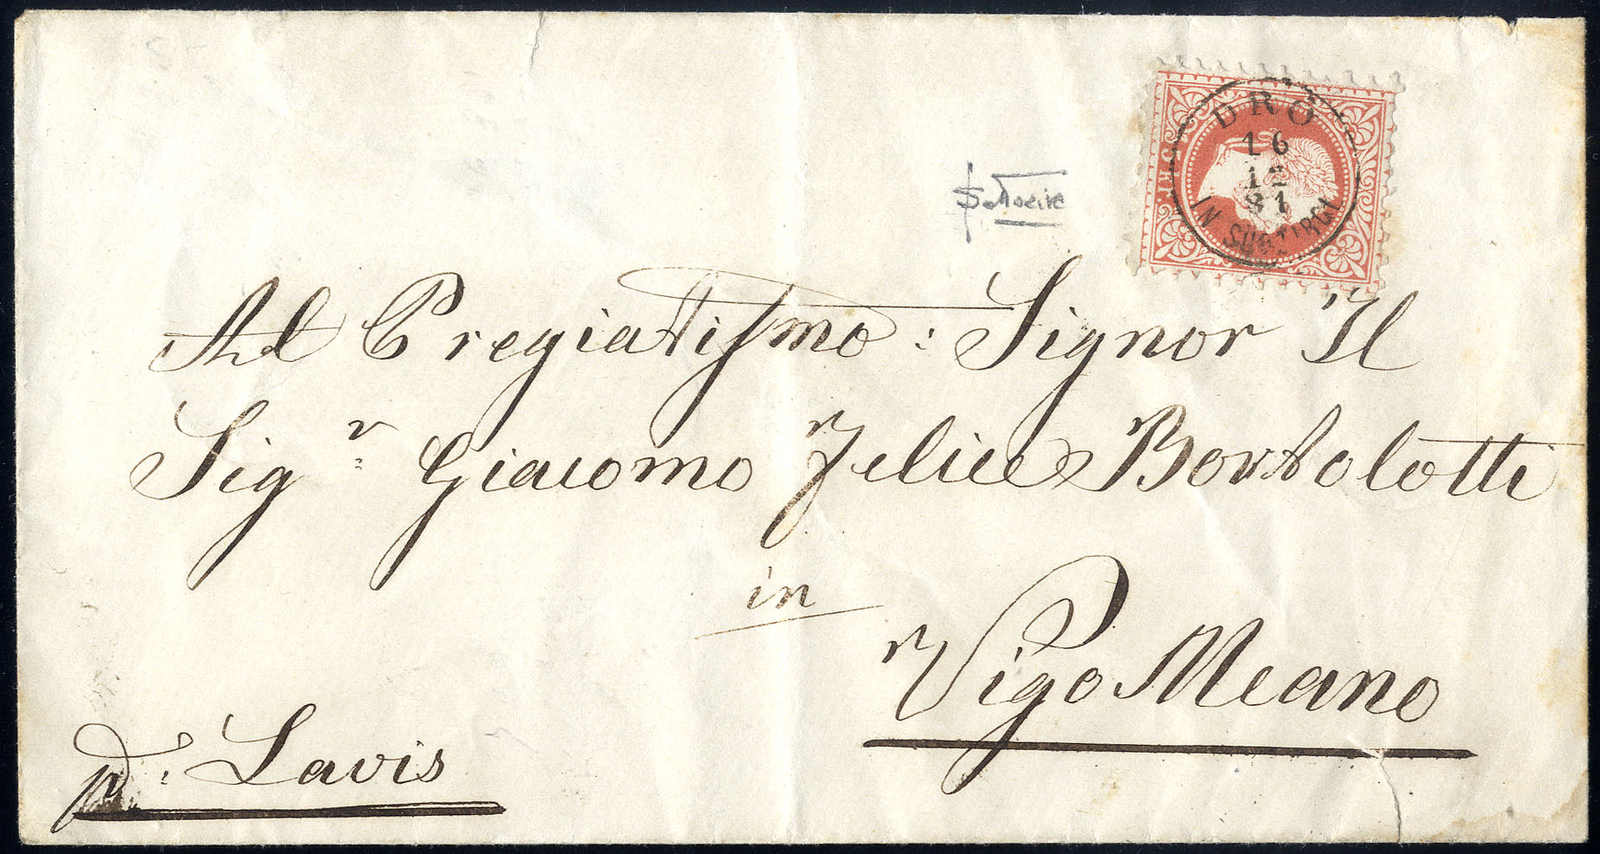 DRO
16
12
81
IN SÜDTIROL
Al Pregiatissmo: Signor Il
Sigr: Giacomo Felice Bortolotti
in
Vigo Meano
p: Lavis